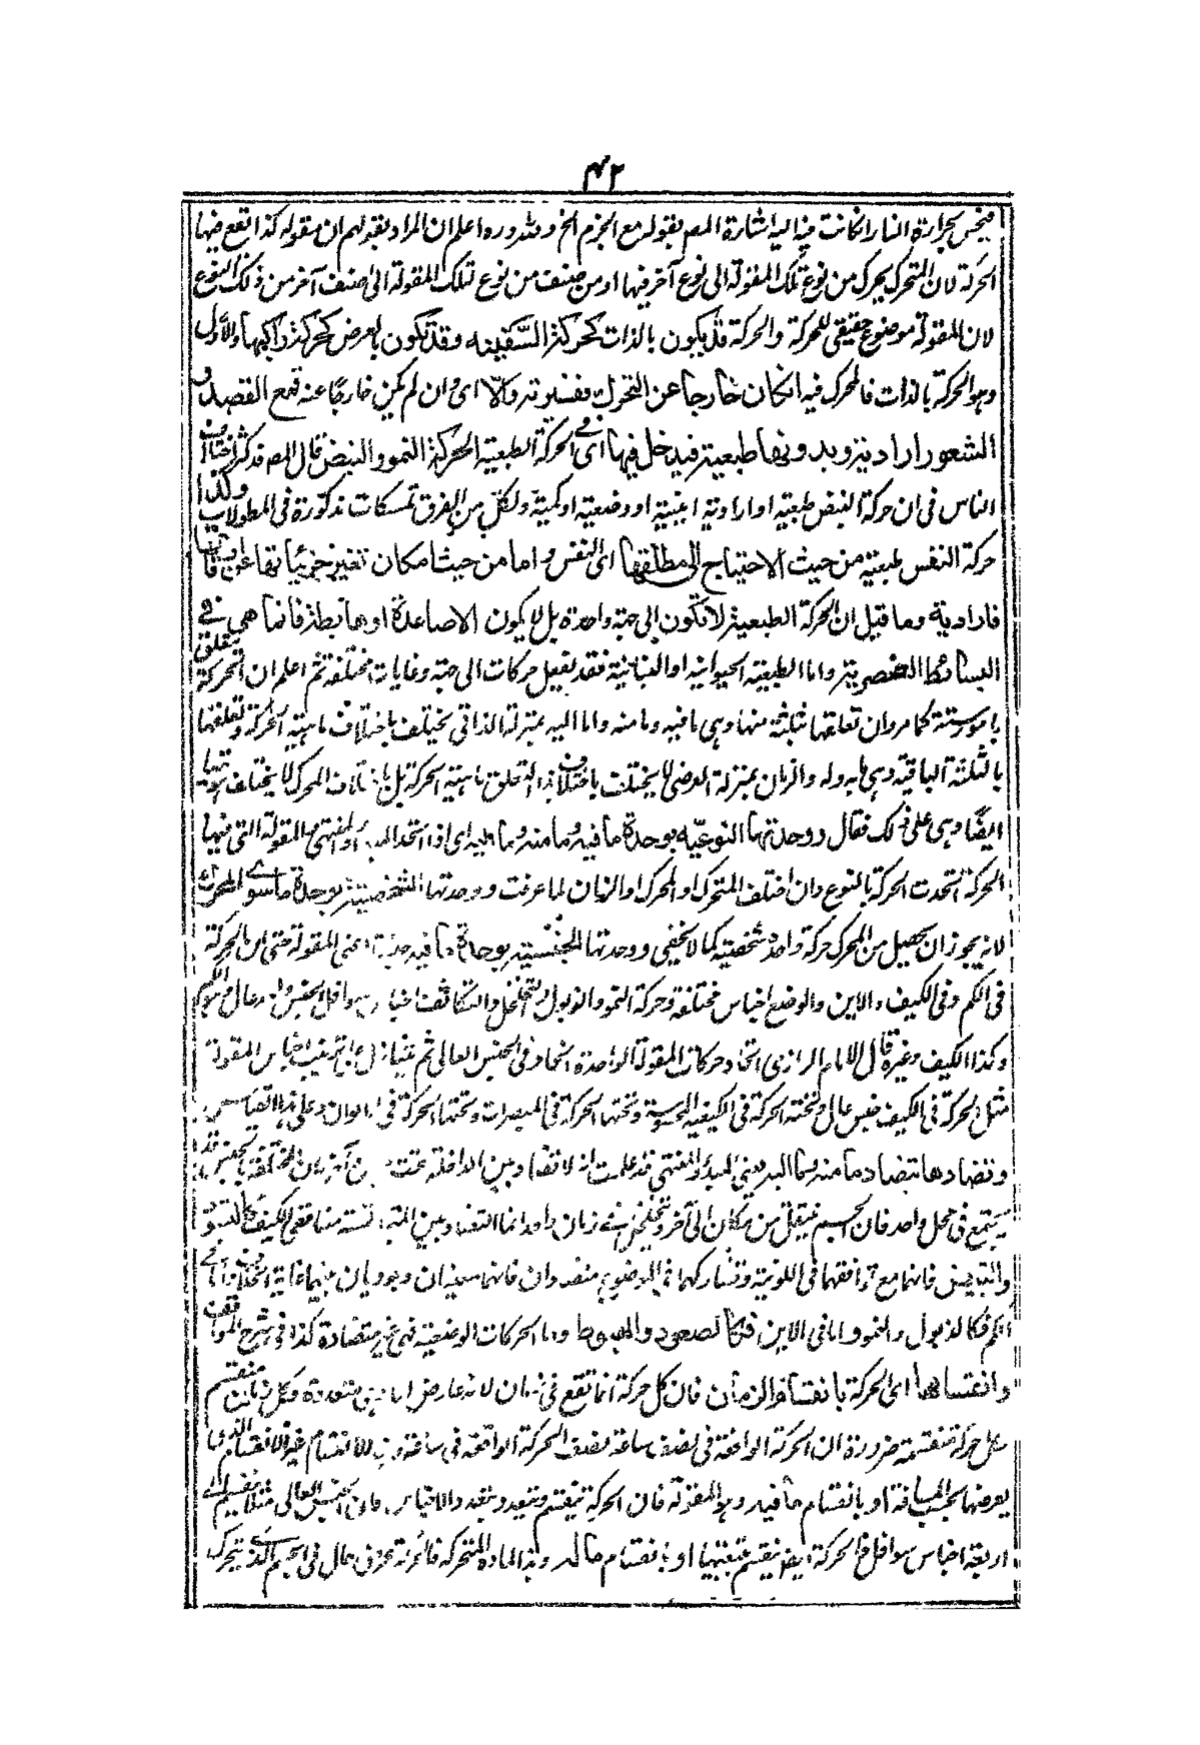 ٤٢
بحرارة النار انكانت فيه اليه اشارة المصـ بقوله مع الجزم الخ ولله دره اعلم ان المراد بقولهم ان مقولة كذا تقع فيها
الحركة لان المتحرك يتحرك من نوع تلك المقولة الى نوع آخر فيها او من صنف من نوع تلك المقولة الى صنف آخر من ذلك النوع
لان المقولة موضوع حقيقى للحركة والحركة قد يكون بالذات كحركة السفينة وقد تكون بالعرض كحركة راكبها والاول
وهو الحركة بالذات فالمحرك فيه انكان خارجا عن المتحرك فقسرية والا اى وان لم يكن خارجا عنه فمع القصد و
الشعور ارادية وبدونها طبعية فيدخل فيها اى فى الحركة الطبعية الحركة النمو والنبض قال المصـ قد كثر اختلاف
الناس فى ان حركة النبض طبعية او ارادية اينية او وضعية او كمية ولكل من الفرق تمسكات مذكورة فى المطولات وكذا
حركة النفس طبعية من حيث الاحتياج الى مطلقها اى النفس واما من حيث امكان تغيير جزئياتها عن اوقاتها
فارادية وما قيل ان الحركة الطبعية لا تكون الى جهة واحدة بل لا يكون الا صاعدة او هابطة فانما هى فى
البسائط العنصرية واما الطبعية الحيوانية او النباتية فقد تفعل حركات الى جهة وغايات مختلفة ثم اعلم ان الحركة متعلق
بامور ستة كما مر وان تعلقها بثلثة منها وهى ما فيه وما منه واما اليه بمنزلة الذاتى يختلف باختلاف ماهية الحركة وتعلقها
بالثلثة الباقية وهى ما به وله والزمان بمنزلة العرضى لا يختلف باختلاف هذا التعلق ماهية الحركة بل باختلاف المحرك لا يختلف هويتها
ايضا وهى على ذلك فقال ووحدتها النوعية بوحدة ما فيه وما منه وما اليه اى اذا اتحد المبدأ والمنتهى والمقولة التى فيها
الحركة اتحدت الحركة بالنوع وان اختلف المتحرك او المحرك او الزمان لما عرفت ووحدتها الشخصية بوحدة ما سوى المحرك
لانه يجوز ان يحصل من المحرك حركة واحدة شخصية كما لا يخفى ووحدتها الجنسية بوحدة ما فيه اعنى المقولة حتى ان الحركة
فى الكم وفى الكيف والاين والوضع اجناس مختلفة وحركة النمو والذبول والتخلخل والتكاثف اجناس سوافل لجنس عال هو الكم
وكذا الكيف وغيره قال الامام الرازى اتحاد حركات المقولة الواحدة اتحاد فى الجنس العالى ثم يتنازل على ترتيب اجناس المقولة
مثل الحركة فى الكيف جنس عال وتحته الحركة فى الكيفية المحسوسة وتحتها الحركة فى المبصرات وتحتها الحركة فى الالوان وعلى هذا القياس
وتضادها بتضاد ما منه وما اليه يعنى المبدأ والمنتهى قد علمت انه لا تضاد بين الداخلة تحت
يجتمع فى محل واحد فان الجسم ينتقل من مكان الى آخر فى زمان واحد انما التضاد بين فى الكيف كالتسود
والتبييض فانهما مع توافقهما فى اللونية وتشاركهما فى الموضوع متضادان فانهما معنيان وجوديان بينهما غاية الخلاف واما فى
الكم فكالذبول والنمو واما فى الاين فكالصعود والهبوط واما الحركات الوضعية فهى غير متضادة كذا فى شرح المواقف
وانقسامها اى الحركة بانقسام الزمان فان كل حركة انما تقع فى زمان لانه عارض وكل زمان منقسم
كل حركة منقسمة ضرورة ان الحركة الواقعة فى نصف ساعة نصف الحركة الواقعة فى ساعة وهذا الانقسام غير الانقسام الذى
يعرضها بحسب المسافة او بانقسام ما فيه وهو المقولة فان الحركة تنقسم وتتعدد بتعدد الاجناس فان الجنس العالى مثلا ينقسم الى
اربعة اجناس سوافل فالحركة ايضا ينقسم بتقسيمها او بانقسام ما له وهذا المادة المتحركة فالحركة عرض حال فى الجسم الذى يتحرك